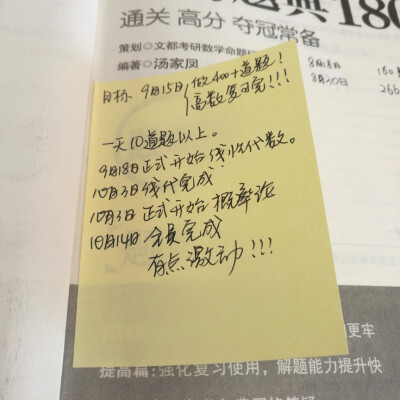 题典180
通关 高分 夺冠常备
策划◎文都考研数学命题研
编著◎汤家凤
8月18日 160
8月30日 266
目标 9月15日 做400+道题!
高数复习完!!!
一天10道题以上。
9月18日正式开始线性代数。
10月3日线代完成
10月3日正式开始概率论
10月14日全员完成
有点激动!!!
更牢
提高篇:强化复习使用,解题能力提升快